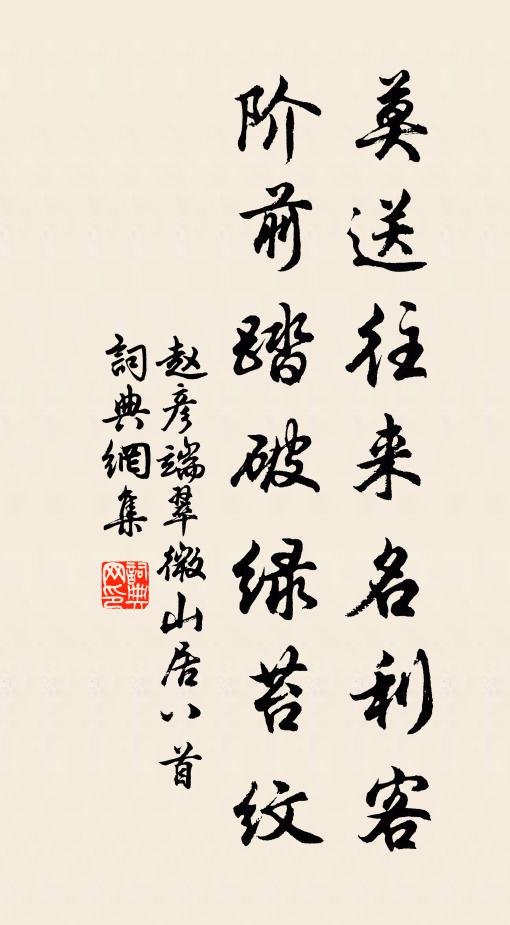 莫送往来名利客
阶前踏破绿苔纹
赵彦端翠微山居八首
詞典網集
詞典网印